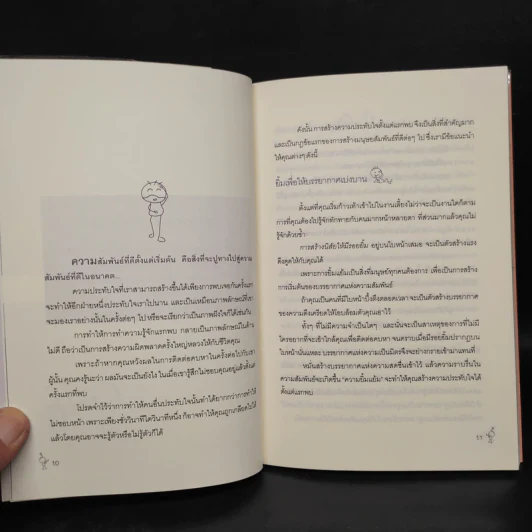 ความสัมพันธ์ที่ดีตั้งแต่เริ่มต้น คือสิ่งที่จะปูทางไปสู่ความ
สัมพันธ์ที่ดีในอนาคต...
ความประทับใจที่เราสามารถสร้างขึ้นได้เพียงการพบเจอกันครั้งแรก
จะทำให้อีกฝ่ายหนึ่งประทับใจเราไปนาน และเป็นเหมือนภาพลักษณ์ที่เรา
จะมองเราอย่างนั้นในครั้งต่อๆ ไป หรือจะเรียกว่าเป็นภาพฝังใจก็ได้เช่นกัน
การทำให้การทำความรู้จักแรกพบ กลายเป็นภาพลักษณ์ในด้าน
ไม่ดี ถือว่าเป็นการสร้างความผิดพลาดครั้งใหญ่หลวงให้กับชีวิตคุณ
เพราะถ้าหากคุณหวังผลในการติดต่อคบหาในครั้งต่อไปกับเขา
ผู้นั้น คุณคงรู้นะว่า ผลมันจะเป็นยังไง ในเมื่อเขารู้สึกไม่ชอบคุณอยู่แล้วตั้งแต่
ครั้งแรกที่พบ
โปรดจำไว้ว่าการทำให้คนอื่นประทับใจนั้นทำได้ยากกว่าการทำให้
ไม่ชอบหน้า เพราะเพียงชั่ววินาทีใดวินาทีหนึ่ง ก็อาจทำให้คุณถูกเกลียดไปได้
แล้วโดยคุณอาจจะรู้ตัวหรือไม่รู้ตัวก็ได้
10
ดังนั้น การสร้างความประทับใจตั้งแต่แรกพบ จึงเป็นสิ่งที่สำคัญมาก
และเป็นกฎข้อแรกของการสร้างมนุษยสัมพันธ์ที่ดีต่อๆ ไป ซึ่งเรามีข้อแนะนำ
ให้คุณต่างๆ ดังนี้
ยิ้มเพื่อให้บรรยากาศเบ่งบาน
ตั้งแต่ที่คุณเริ่มก้าวเท้าเข้าไปในงานเลี้ยงไม่ว่าจะเป็นงานใดก็ตาม
การที่คุณต้องไปรู้จักทักทายกับคนมากหน้าหลายตา ที่ส่วนมากแล้วคุณไม่
รู้จักด้วยซ้ำ
การสร้างนิสัยให้มีรอยยิ้ม อยู่บนใบหน้าเสมอ จะเป็นตัวสร้างแรง
ดึงดูดให้กับคุณได้
เพราะการยิ้มแย้มเป็นสิ่งที่มนุษย์ทุกคนต้องการ เพื่อเป็นการสร้าง
การเริ่มต้นของบรรยากาศแห่งความสัมพันธ์
ถ้าคุณเป็นคนที่มีใบหน้าบึ้งตึงตลอดเวลา จะเป็นตัวสร้างบรรยากาศ
ของความตึงเครียดให้โอบล้อมตัวคุณเอาไว้
ทั้งๆ ที่ไม่มีความจำเป็นใดๆ และนั่นจะเป็นสาเหตุของการที่ไม่มี
ใครอยากที่จะเข้าใกล้คุณเพื่อติดต่อคบหา จนตราบเมื่อมีรอยยิ้มปรากฏบน
ใบหน้านั่นแหละ บรรยากาศแห่งความเป็นมิตรจึงจะย่างกรายเข้ามาแทนที่
หมั่นสร้างบรรยากาศแห่งความสดชื่นเข้าไว้ แล้วความราบรื่นใน
ความสัมพันธ์จะเกิดขึ้น "ความยิ้มแย้ม" จะทำให้คุณสร้างความประทับใจได้
ตั้งแต่แรกพบ
11